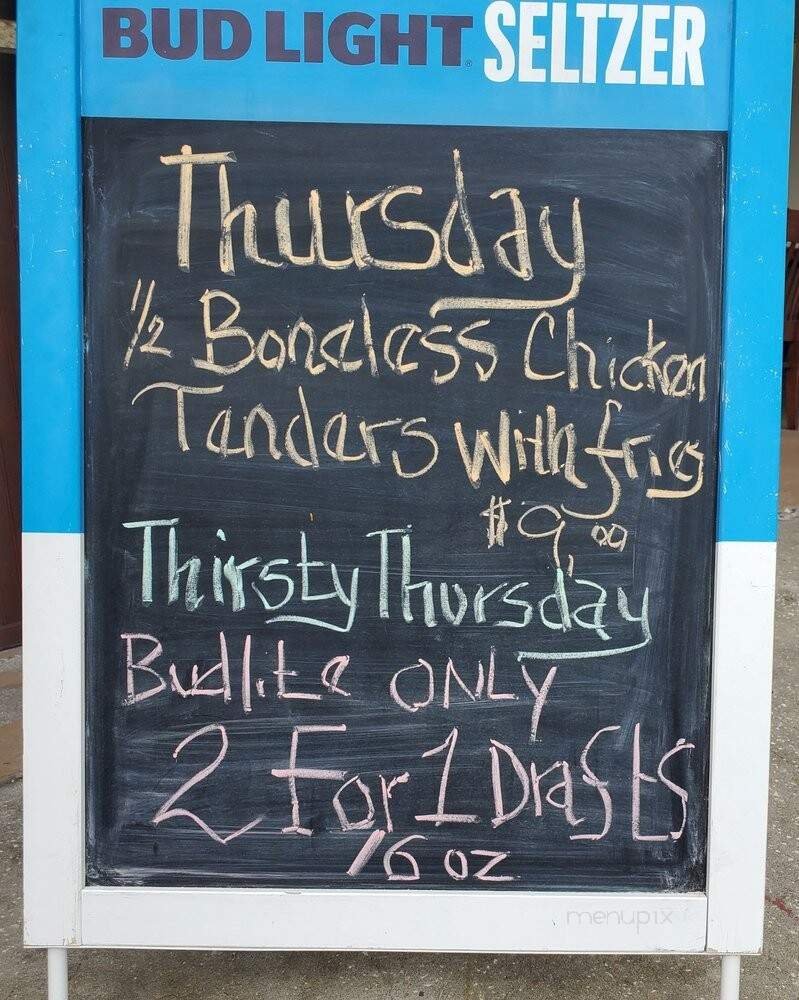 BUD LIGHT SELTZER
Thursday
1/2 Boneless Chicken
Tenders With fries
$9.00
Thirsty Thursday
Budlite ONLY
2 For 1 Drafts
16 oz
menupix